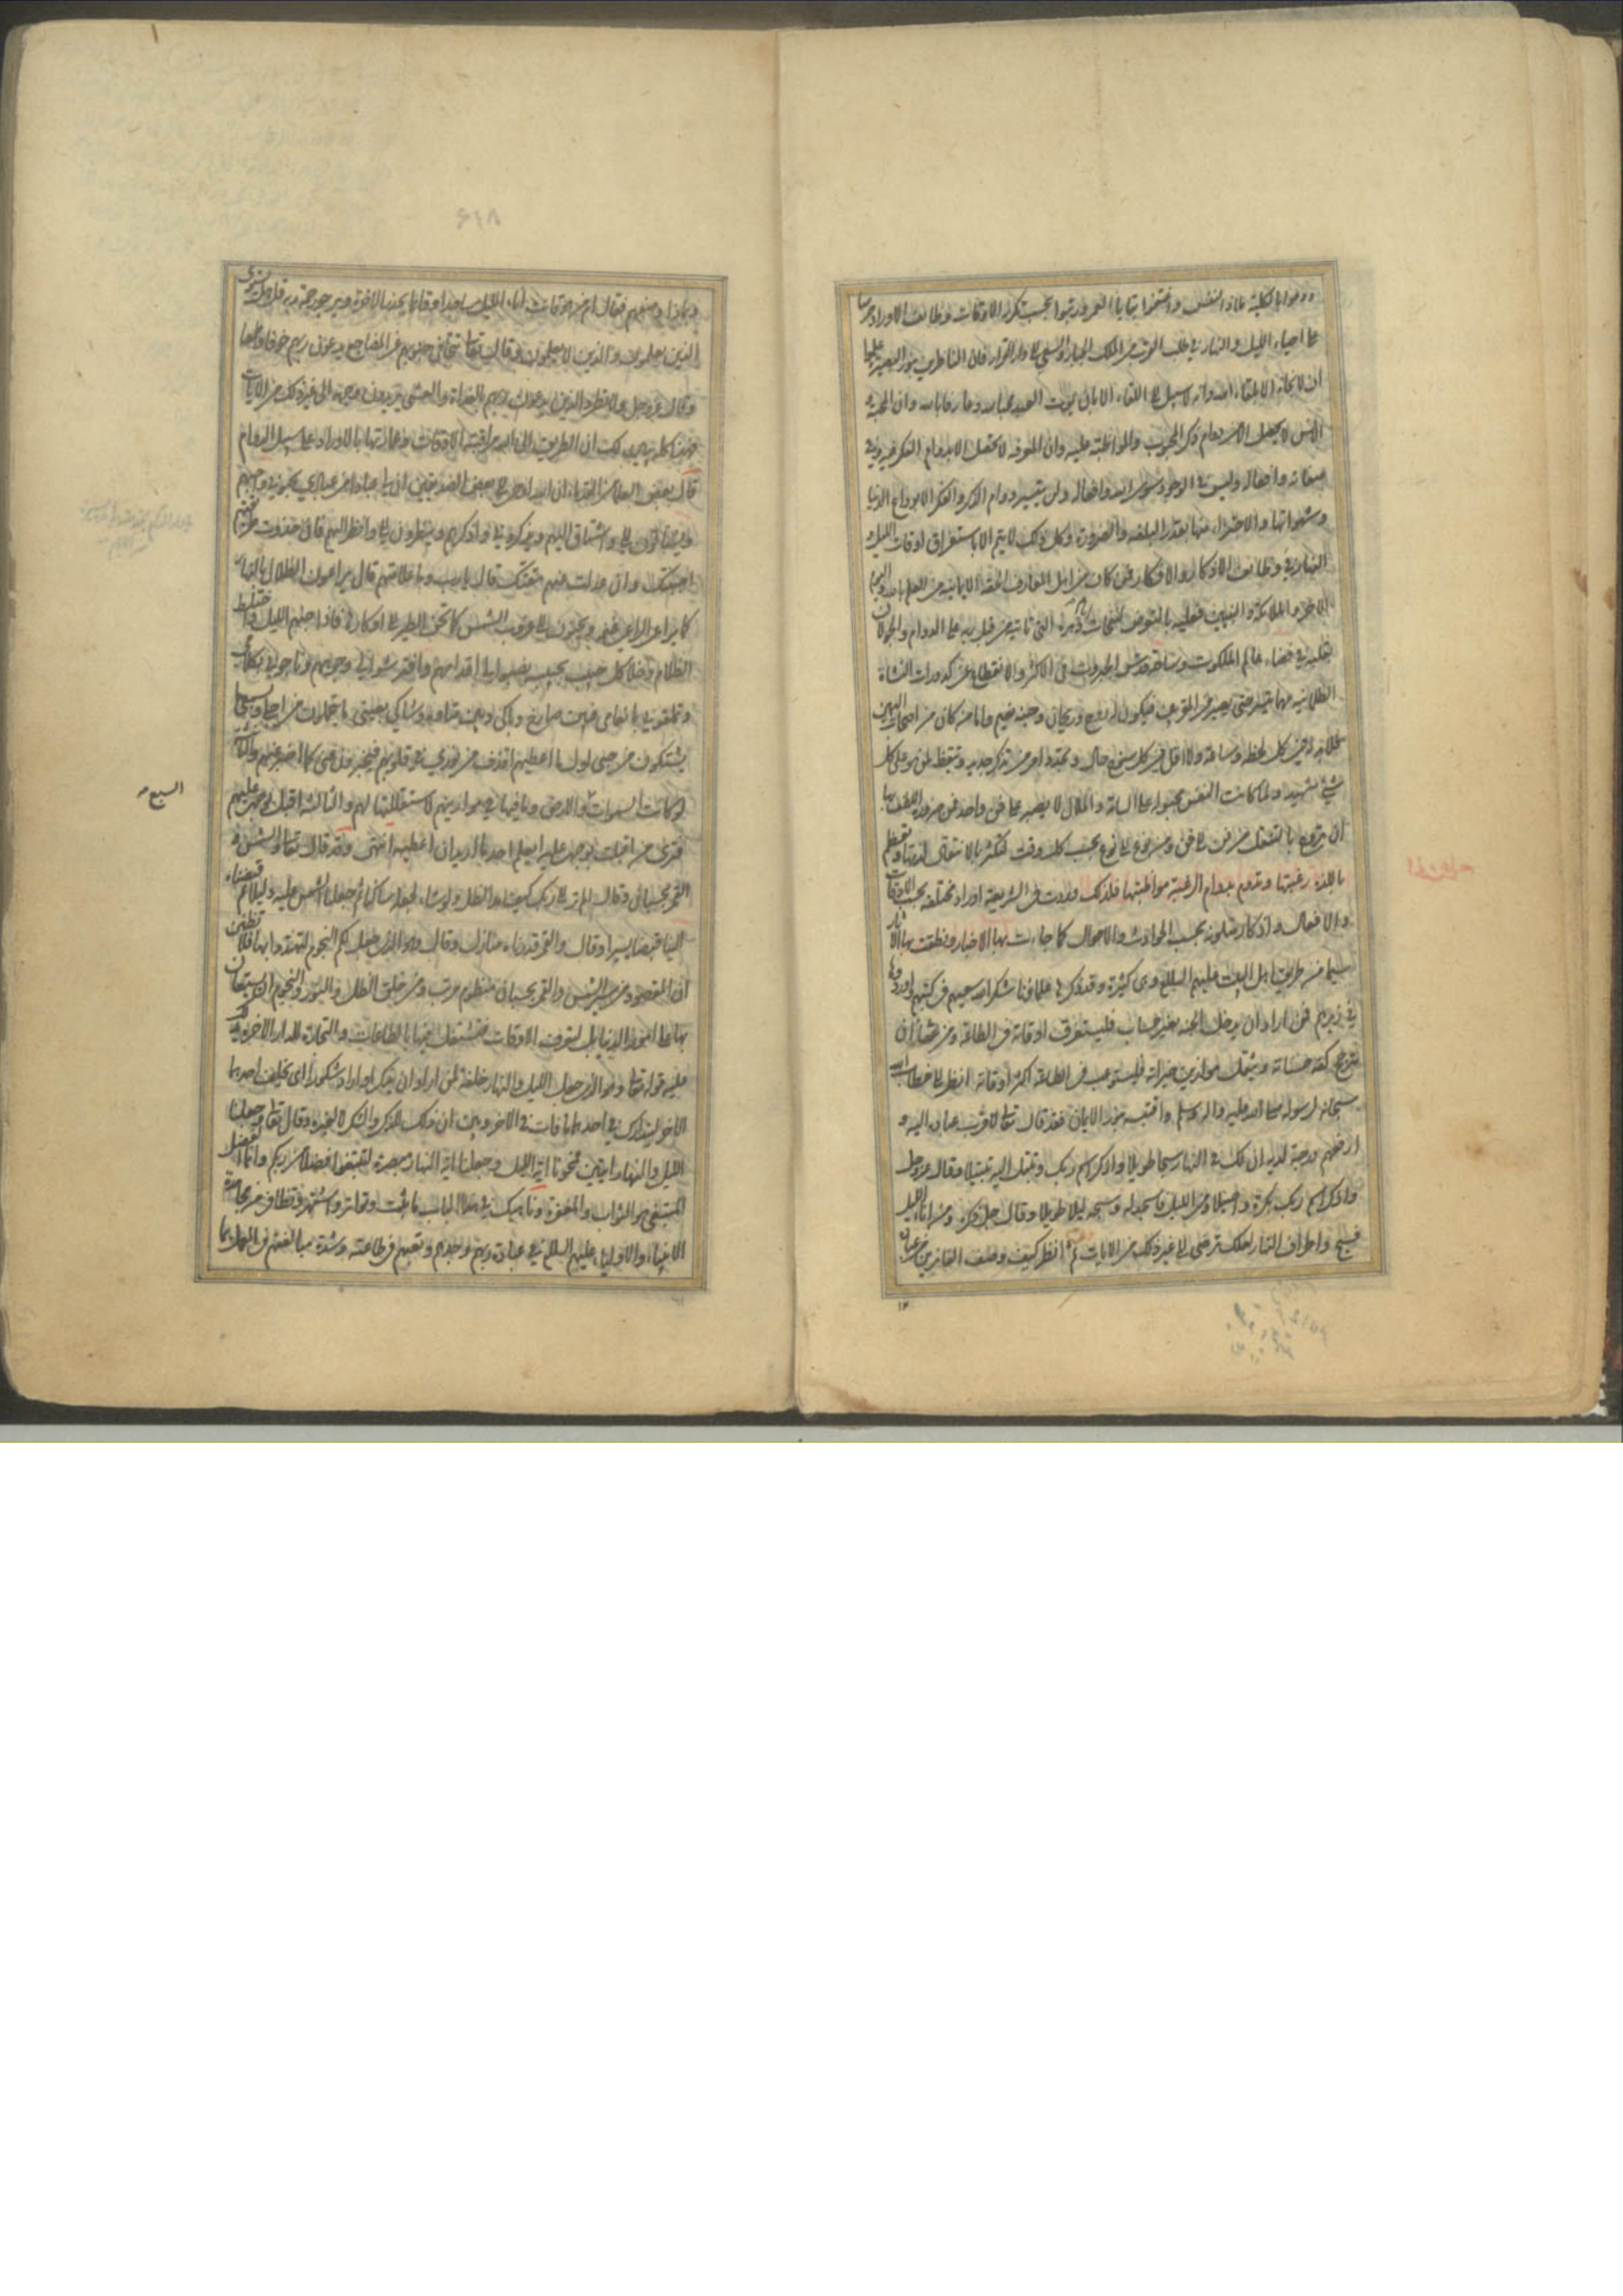 ودعوا بالكلية ملاذ النفس واغتنموا بقايا العمر ورتبوا بحسب تكرر الاوقات وظائف الاوراد حرصا
على احياء الليل والنهار في طلب القرب من الملك الجبار والسعي الى دار القرار فان الناظرين بنور البصيرة علموا
ان لا نجاة الا بلقاء الله وانه لا سبيل الى اللقاء الا بان يموت العبد محبا لله وعارفا بالله وان المحبة و
الانس لا يحصل الا من دوام ذكر المحبوب والمواظبة عليه وان المعرفة لا تحصل الا بدوام الفكر فيه وفي
صفاته وافعاله وليس في الوجود سوى الله وافعاله ولن يتيسر دوام الذكر والفكر الا بوداع الدنيا
وشهواتها والاجتزاء منها بقدر البلغة والضرورة وكل ذلك لا يتم الا باستغراق اوقات الليل و
النهار في وظائف الاذكار والافكار فمن كان من اهل المعارف الحقة الايمانية من العلم بالله واليوم
الاخر والملائكة والنبيين فعليه بالتعرض لنفحات دهره التي تاتيه من قبل ربه على الدوام والجولان
بقلبه في فضاء عالم الملكوت وساحة قدس الجبروت في الاكثر والانقطاع عن كدورات النشاة
الظلمانية مهما تيسر حتى يصير من المقربين فيكون له روح وريحان وجنة نعيم واما من كان من اصحاب اليمين
فلابد له في كل لحظة وساعة ولا اقل في كل سنوح حال وتجدد امر من تذكر جديد وتيقظ لمن هو على كل
شيء شهيد ولما كانت النفس مجبولة على السامة والملال لا يصبر على فن واحد فمن ضرورة اللطف بها
ان تروح بالتنقل من فن الى فن ومن نوع الى نوع بحسب كل وقت لتكثر بالانتقال لذتها وتعظم
باللذة رغبتها وتدوم بدوام الرغبة مواظبتها فلذلك وردت في الشريعة اوراد مختلفة بحسب الاوقات
والافعال واذكار متلونة بحسب الحوادث والاحوال كما جاءت بها الاخبار ونطقت بها الاثار
سيما من طريق اهل البيت عليهم السلام وهي كثيرة وقد ذكرها علماؤنا شكر الله سعيهم في كتبهم واوردوها
في زبرهم فمن اراد ان يدخل الجنة بغير حساب فليستغرق اوقاته في الطاعة ومن شاء ان
تترجح كفة حسناته وتثقل موازين خيراته فليستوعب في الطاعة اكثر اوقاته انظر الى خطاب الله
سبحانه لرسوله صلى الله عليه واله وسلم واقتبسه بنور الايمان فقد قال تعالى لاقرب عباده اليه و
ارفعهم درجة لديه ان لك في النهار سبحا طويلا واذكر اسم ربك وتبتل اليه تبتيلا وقال عز وجل
واذكر اسم ربك بكرة واصيلا ومن الليل فاسجد له وسبحه ليلا طويلا وقال جل ذكره ومن اناء الليل
فسبح واطراف النهار لعلك ترضى الى غير ذلك من الايات ثم انظر كيف وصف الفائزين من عباده
١٢
٤١٨
وبماذا وصفهم فقال امن هو قانت اناء الليل ساجدا وقائما يحذر الاخرة ويرجو رحمة ربه قل هل يستوي
الذين يعلمون والذين لا يعلمون وقال تعالى تتجافى جنوبهم عن المضاجع يدعون ربهم خوفا وطمعا
وقال عز وجل ولا تطرد الذين يدعون ربهم بالغداة والعشي يريدون وجهه الى غير ذلك من الايات
فهذا كله يبين لك ان الطريق الى الله مراقبة الاوقات وعمارتها بالاوراد على سبيل الدوام
قال بعض العلماء القدماء ان الله اوحى الى بعض الصديقين ان لي عبادا من عبادي يحبوني واحبهم
ويشتاقون الي واشتاق اليهم ويذكروني واذكرهم وينظرون الي وانظر اليهم فان حذوت طريقهم
احببتك وان عدلت عنهم مقتك قال يا رب وما علامتهم قال يراعون الظلال بالنهار
كما يراعي الراعي غنمه ويحنون الى غروب الشمس كما تحن الطير الى اوكارها فاذا جنهم الليل واختلط
الظلام وخلا كل حبيب بحبيبه نصبوا لي اقدامهم وافترشوا لي وجوههم وناجوني بكلامي
وتملقوني بانعامي فبين صارخ وباكي وبين متاوه وشاكي بعيني ما يتحملون من اجلي وبسمعي ما
يشتكون من حبي اول ما اعطيهم اقذف من نوري في قلوبهم فيخبرون عني كما اخبر عنهم والثانية
لو كانت السموات والارض وما فيها في موازينهم لاستقللتها لهم والثالثة اقبل بوجهي عليهم
فترى من اقبلت بوجهي عليه ايعلم احد ما اريد ان اعطيه انتهى وقد قال تعالى والشمس و
القمر بحسبان وقال الم تر الى ربك كيف مد الظل ولو شاء لجعله ساكنا ثم جعلنا الشمس عليه دليلا ثم قبضناه
الينا قبضا يسيرا وقال والقمر قدرناه منازل وقال وهو الذي جعل لكم النجوم لتهتدوا بها فلا تظنن
ان المقصود من سير الشمس والقمر بحسبان منظوم مرتب ومن خلق الظل والنور والنجوم ان يستعان
بها على امور الدنيا بل لتعرف الاوقات فتشتغل فيها بالطاعات والتجارة للدار الاخرة يدلك
عليه قوله تعالى وهو الذي جعل الليل والنهار خلفة لمن اراد ان يذكر او اراد شكورا اي يخلف احدهما
الاخر ليتدارك في احدهما ما فات في الاخر وبين ان ذلك للذكر والشكر لا لغيره وقال تعالى وجعلنا
الليل والنهار ايتين فمحونا اية الليل وجعلنا اية النهار مبصرة لتبتغوا فضلا من ربكم وانما الفضل
المبتغى هو الثواب والمغفرة وناهيك في هذا الباب ما ثبت وتواتر واشتهر وتظافر من مجاهدة
الانبياء والاولياء عليهم السلام في عبادة ربهم وجدهم وتعبهم في طاعته وشدة مبالغتهم في العمل بما
السبع